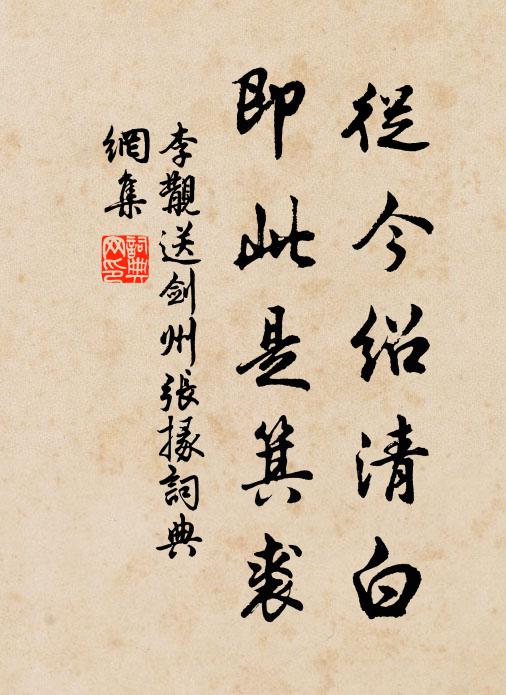 從今紹清白
即此是箕裘
李觀送劍州張掾詞典
網集
詞典網印